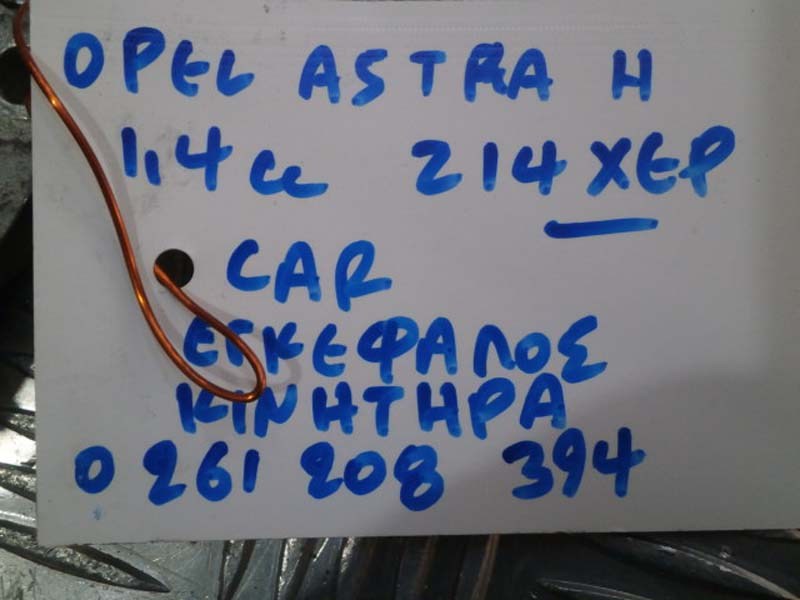 OPEL ASTRA H
1,4 cc 214 ΧΕΡ
CAR
ΕΓΚΕΦΑΛΟΣ
ΚΙΝΗΤΗΡΑ
0 261 208 394